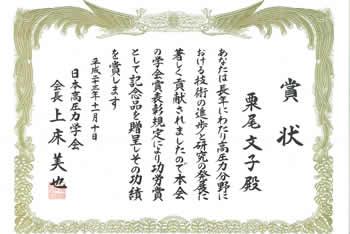 賞状
栗尾文子殿
あなたは長年にわたり高圧力分野に
おける技術の進歩と研究の発展に
著しく貢献されましたので本会
の学会賞表彰規定により功労賞
として記念品を贈呈しその功績
を賞します
平成二十三年十一月十日
日本高圧力学会
会長上床美也